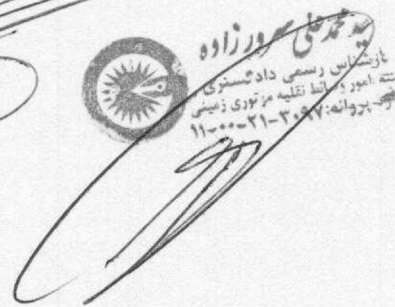 سید محمد علی سرور زاده
کارشناس رسمی دادگستری
رشته امور وسائط نقلیه موتوری زمینی
پروانه: ۱۱-۰۰-۲۱-۳۰۹۷